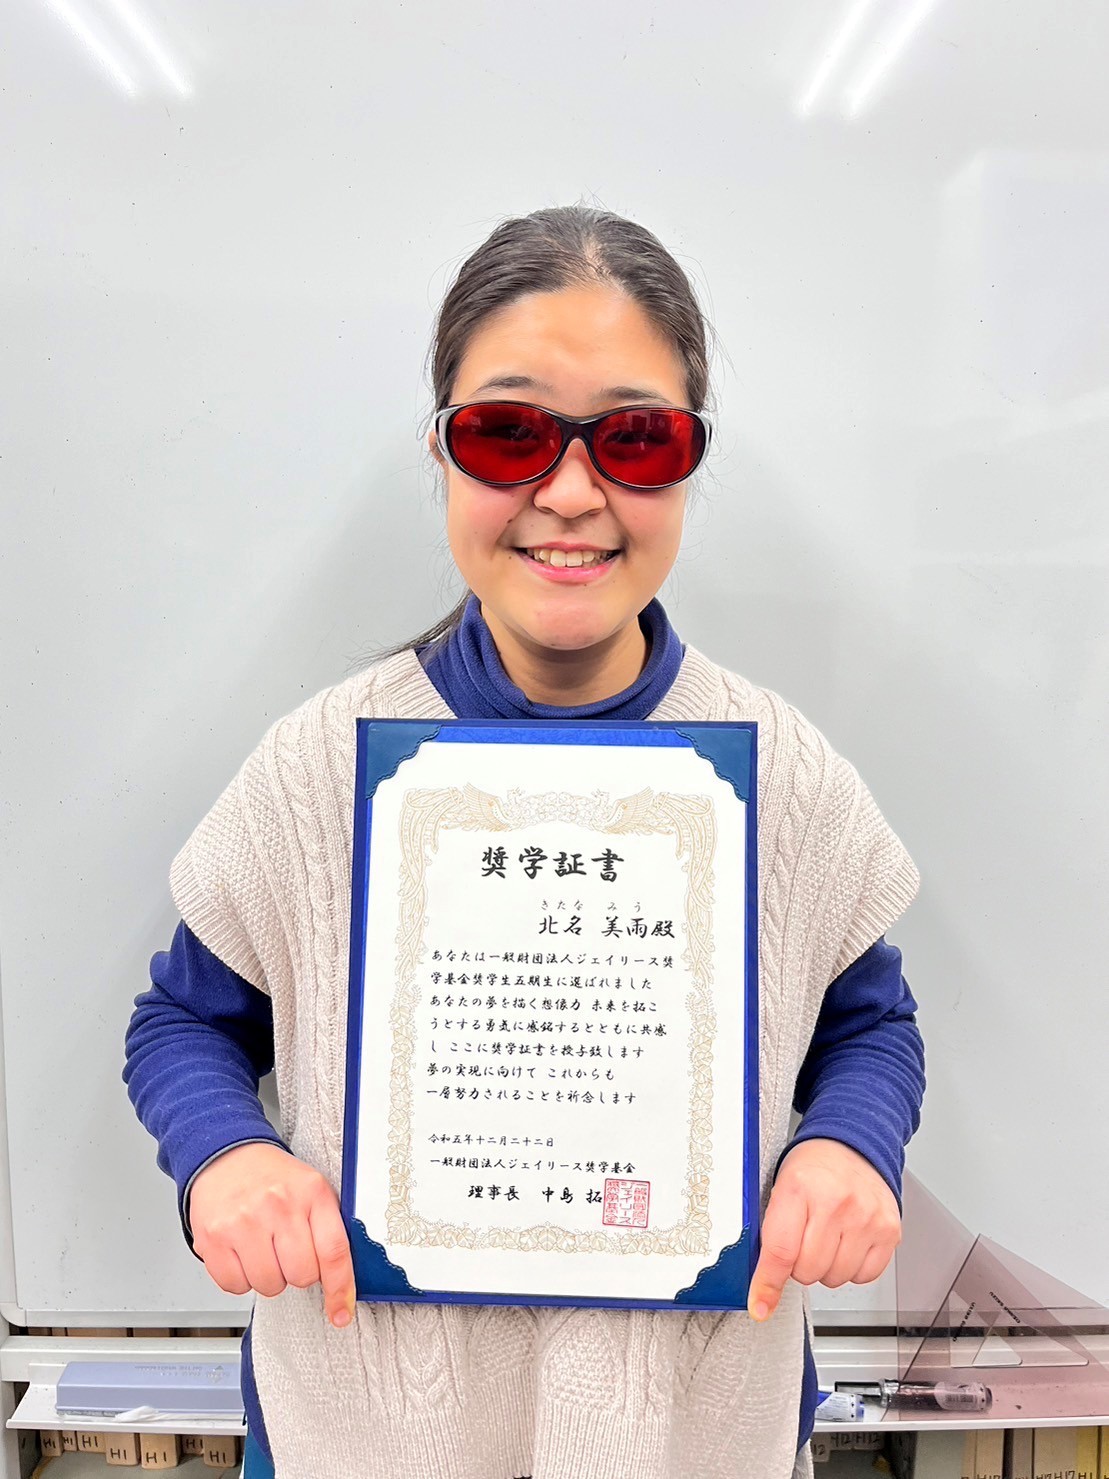 奨学証書
きたな みう
北名 美雨殿
あなたは一般財団法人ジェイリース奨
学基金奨学生五期生に選ばれました
あなたの夢を描く想像力 未来を拓こ
うとする勇気に感銘するとともに共感
し ここに奨学証書を授与致します
夢の実現に向けて これからも
一層努力されることを祈念します
令和五年十二月二十二日
一般財団法人ジェイリース奨学基金
理事長 中島 拓
一般財団法人
ジェイリース
奨学基金
H1
H1
H1
H1
H12
H12
H17